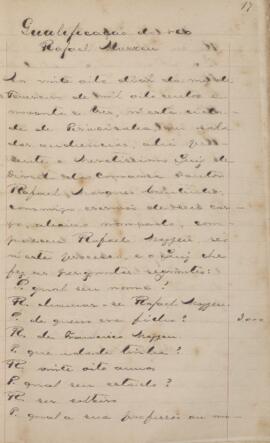 17
Qualificação do reo
Rafael
Ao vinte oito dias do mez de
Fevereiro de mil oito centos e
noventa e tres, n'esta cida-
de de Piracicaba em sala
das audiencias, ahi pre-
sente o Meretissimo Juiz de
Direito da Comarca Doutor
Rafael Marques Coutinho,
commigo escrivão de seu car-
go, abaixo nomeado, com-
pareceu Rafael
n'este processo e o Juiz lhe
fez as perguntas seguintes:
P. qual seu nome?
R. chamar-se Rafael
P. de quem era filho?
R. de Francisco
P. que idade tinha?
R. vinte oito annos
P. qual seu estado?
R. ser solteiro
P. qual a sua profissão ou